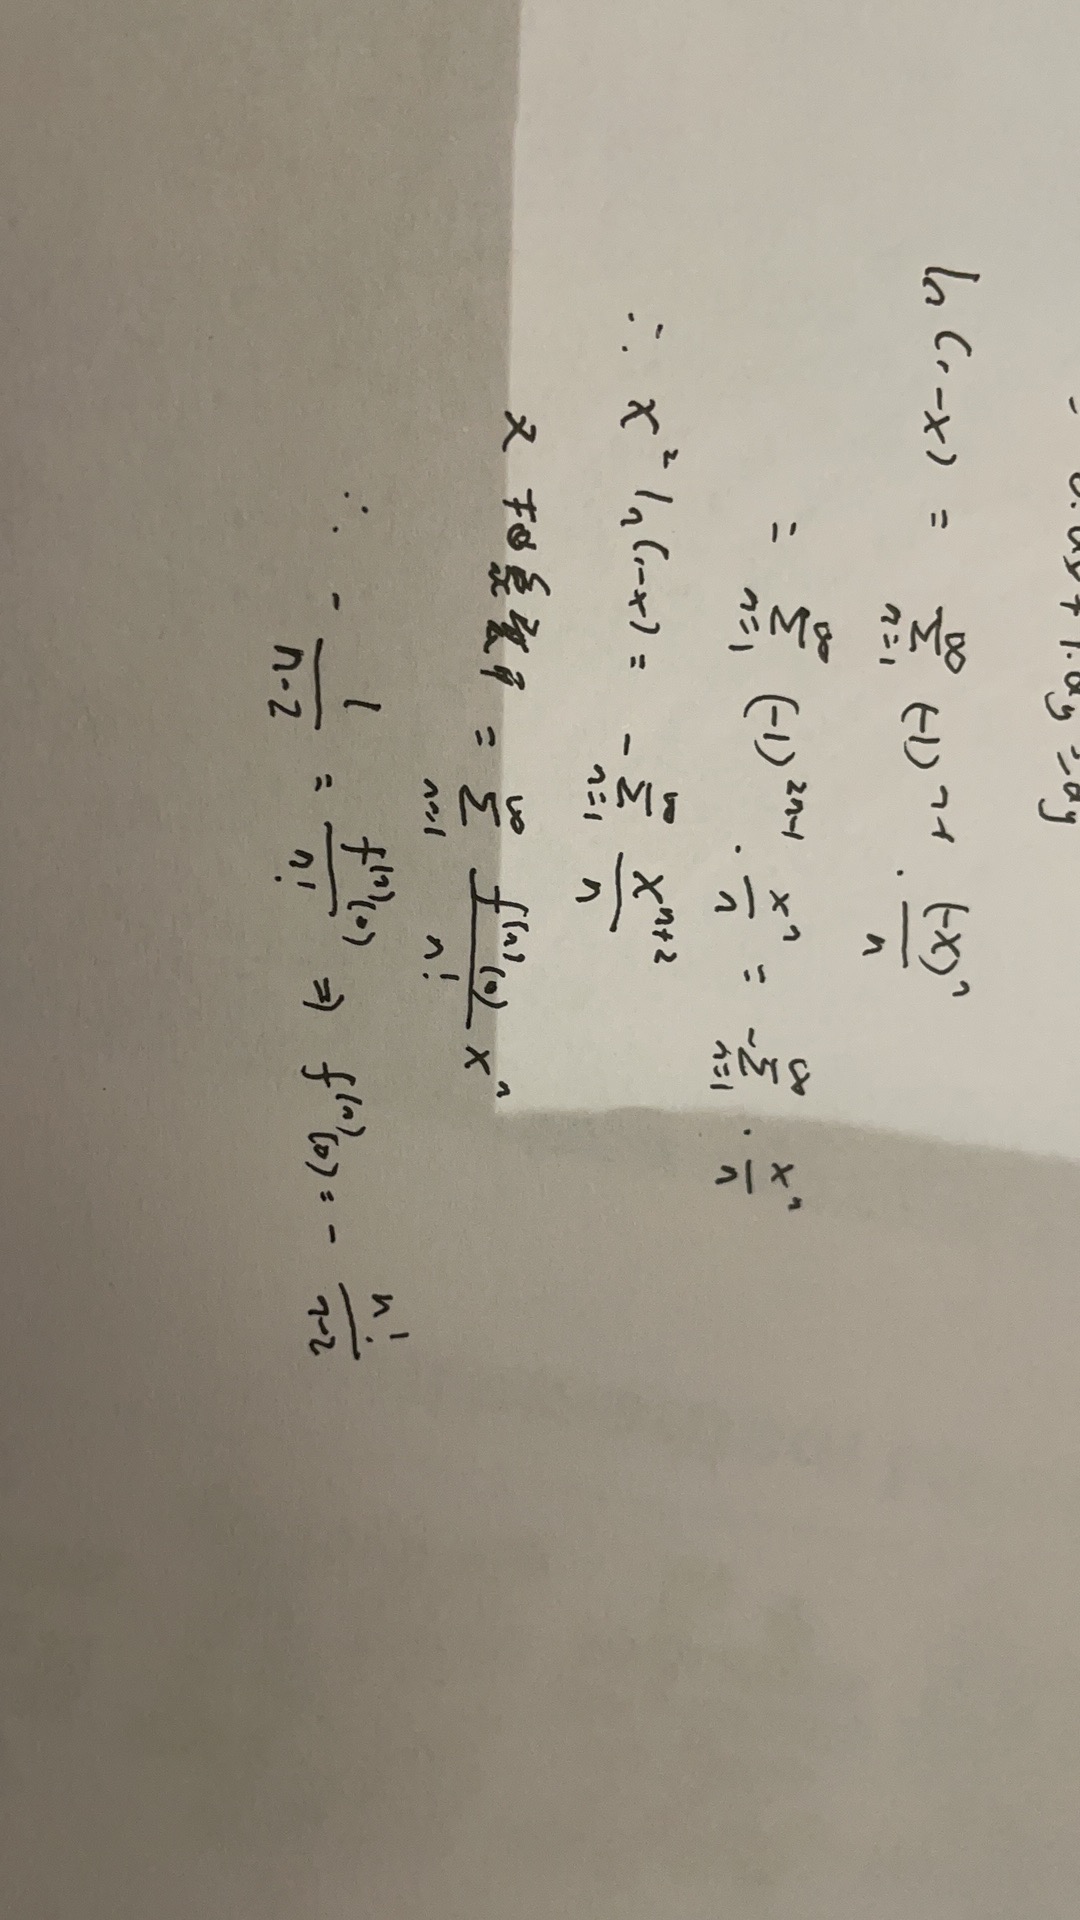 ln(1-x) = \sum_{n=1}^{\infty} (-1)^{n-1} \cdot \frac{(-x)^n}{n}
= \sum_{n=1}^{\infty} (-1)^{2n-1} \cdot \frac{x^n}{n} = -\sum_{n=1}^{\infty} \cdot \frac{x^n}{n}
∴ x^2 ln(1-x) = -\sum_{n=1}^{\infty} \frac{x^{n+2}}{n}
又 = \sum_{n=1}^{\infty} \frac{f^{(n)}(0)}{n!} x^n
∴ -\frac{1}{n-2} = \frac{f^{(n)}(0)}{n!} ⇒ f^{(n)}(0) = -\frac{n!}{n-2}